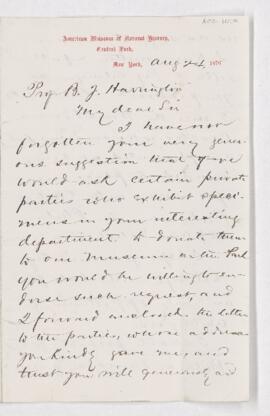 American Museum of Natural History,
Central Park,
New York, Aug 24 1876
Prof B. J. Harrington
My dear Sir
I have not
forgotten your very gener-
ous suggestion that if we
would ask certain private
parties who exhibit speci-
mens in your interesting
department to donate them
to our Museum in the Park
you would be willing to en-
dorse such request, and
I forward enclosed the letter
to the parties, whose address
you kindly gave me, and
trust you will generously aid